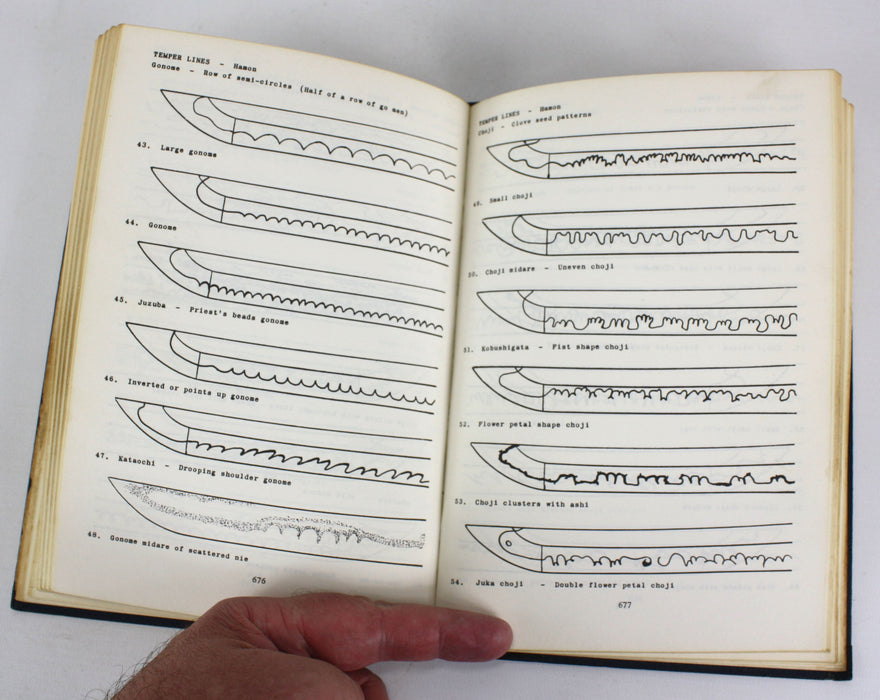 TEMPER LINES - Hamon
Gonome - Row of semi-circles (Half of a row of go men)
43. Large gonome
44. Gonome
45. Juzuba - Priest's beads gonome
46. Inverted or points up gonome
47. Kataochi - Drooping shoulder gonome
48. Gonome midare of scattered nie
676
TEMPER LINES - Hamon
Choji - Clove seed patterns
49. Small choji
50. Choji midare - Uneven choji
51. Kobushigata - Fist shape choji
52. Flower petal shape choji
53. Choji clusters with ashi
54. Juka choji - Double flower petal choji
677